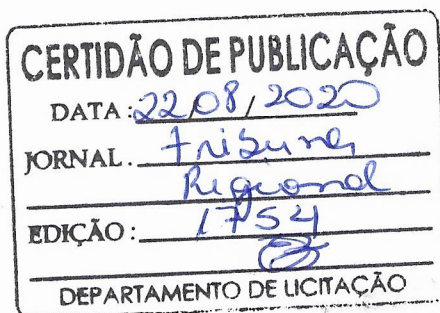 CERTIDÃO DE PUBLICAÇÃO
DATA: 22/08/2020
JORNAL. Tribuna
Regional
EDIÇÃO: 1754
DEPARTAMENTO DE LICITAÇÃO